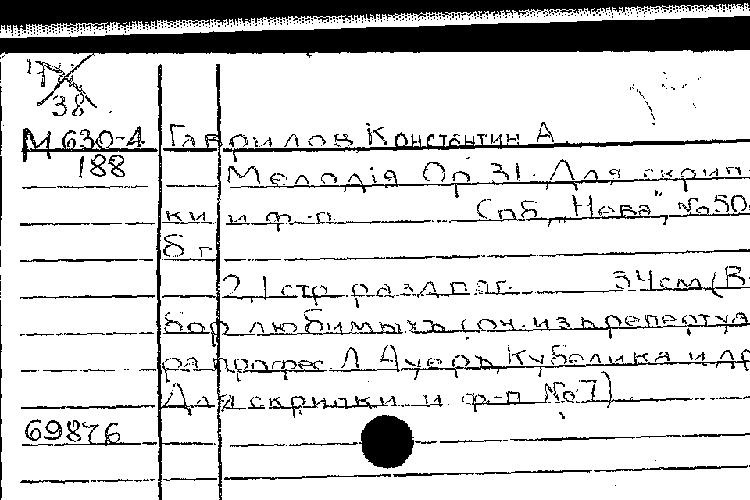 38
М 630-4 Гаврилов, Константин А.
188 Мелодія Ор 31. Для скрип-
ки и ф.-п. Спб, "Нева", №50
б г
2,1 стр разд паг. 34см (В
бор любимыхъ соч. изъ репертуа
ра профес Л Ауеръ, Кубелика и др
Для скрипки и ф-п №7)
69876